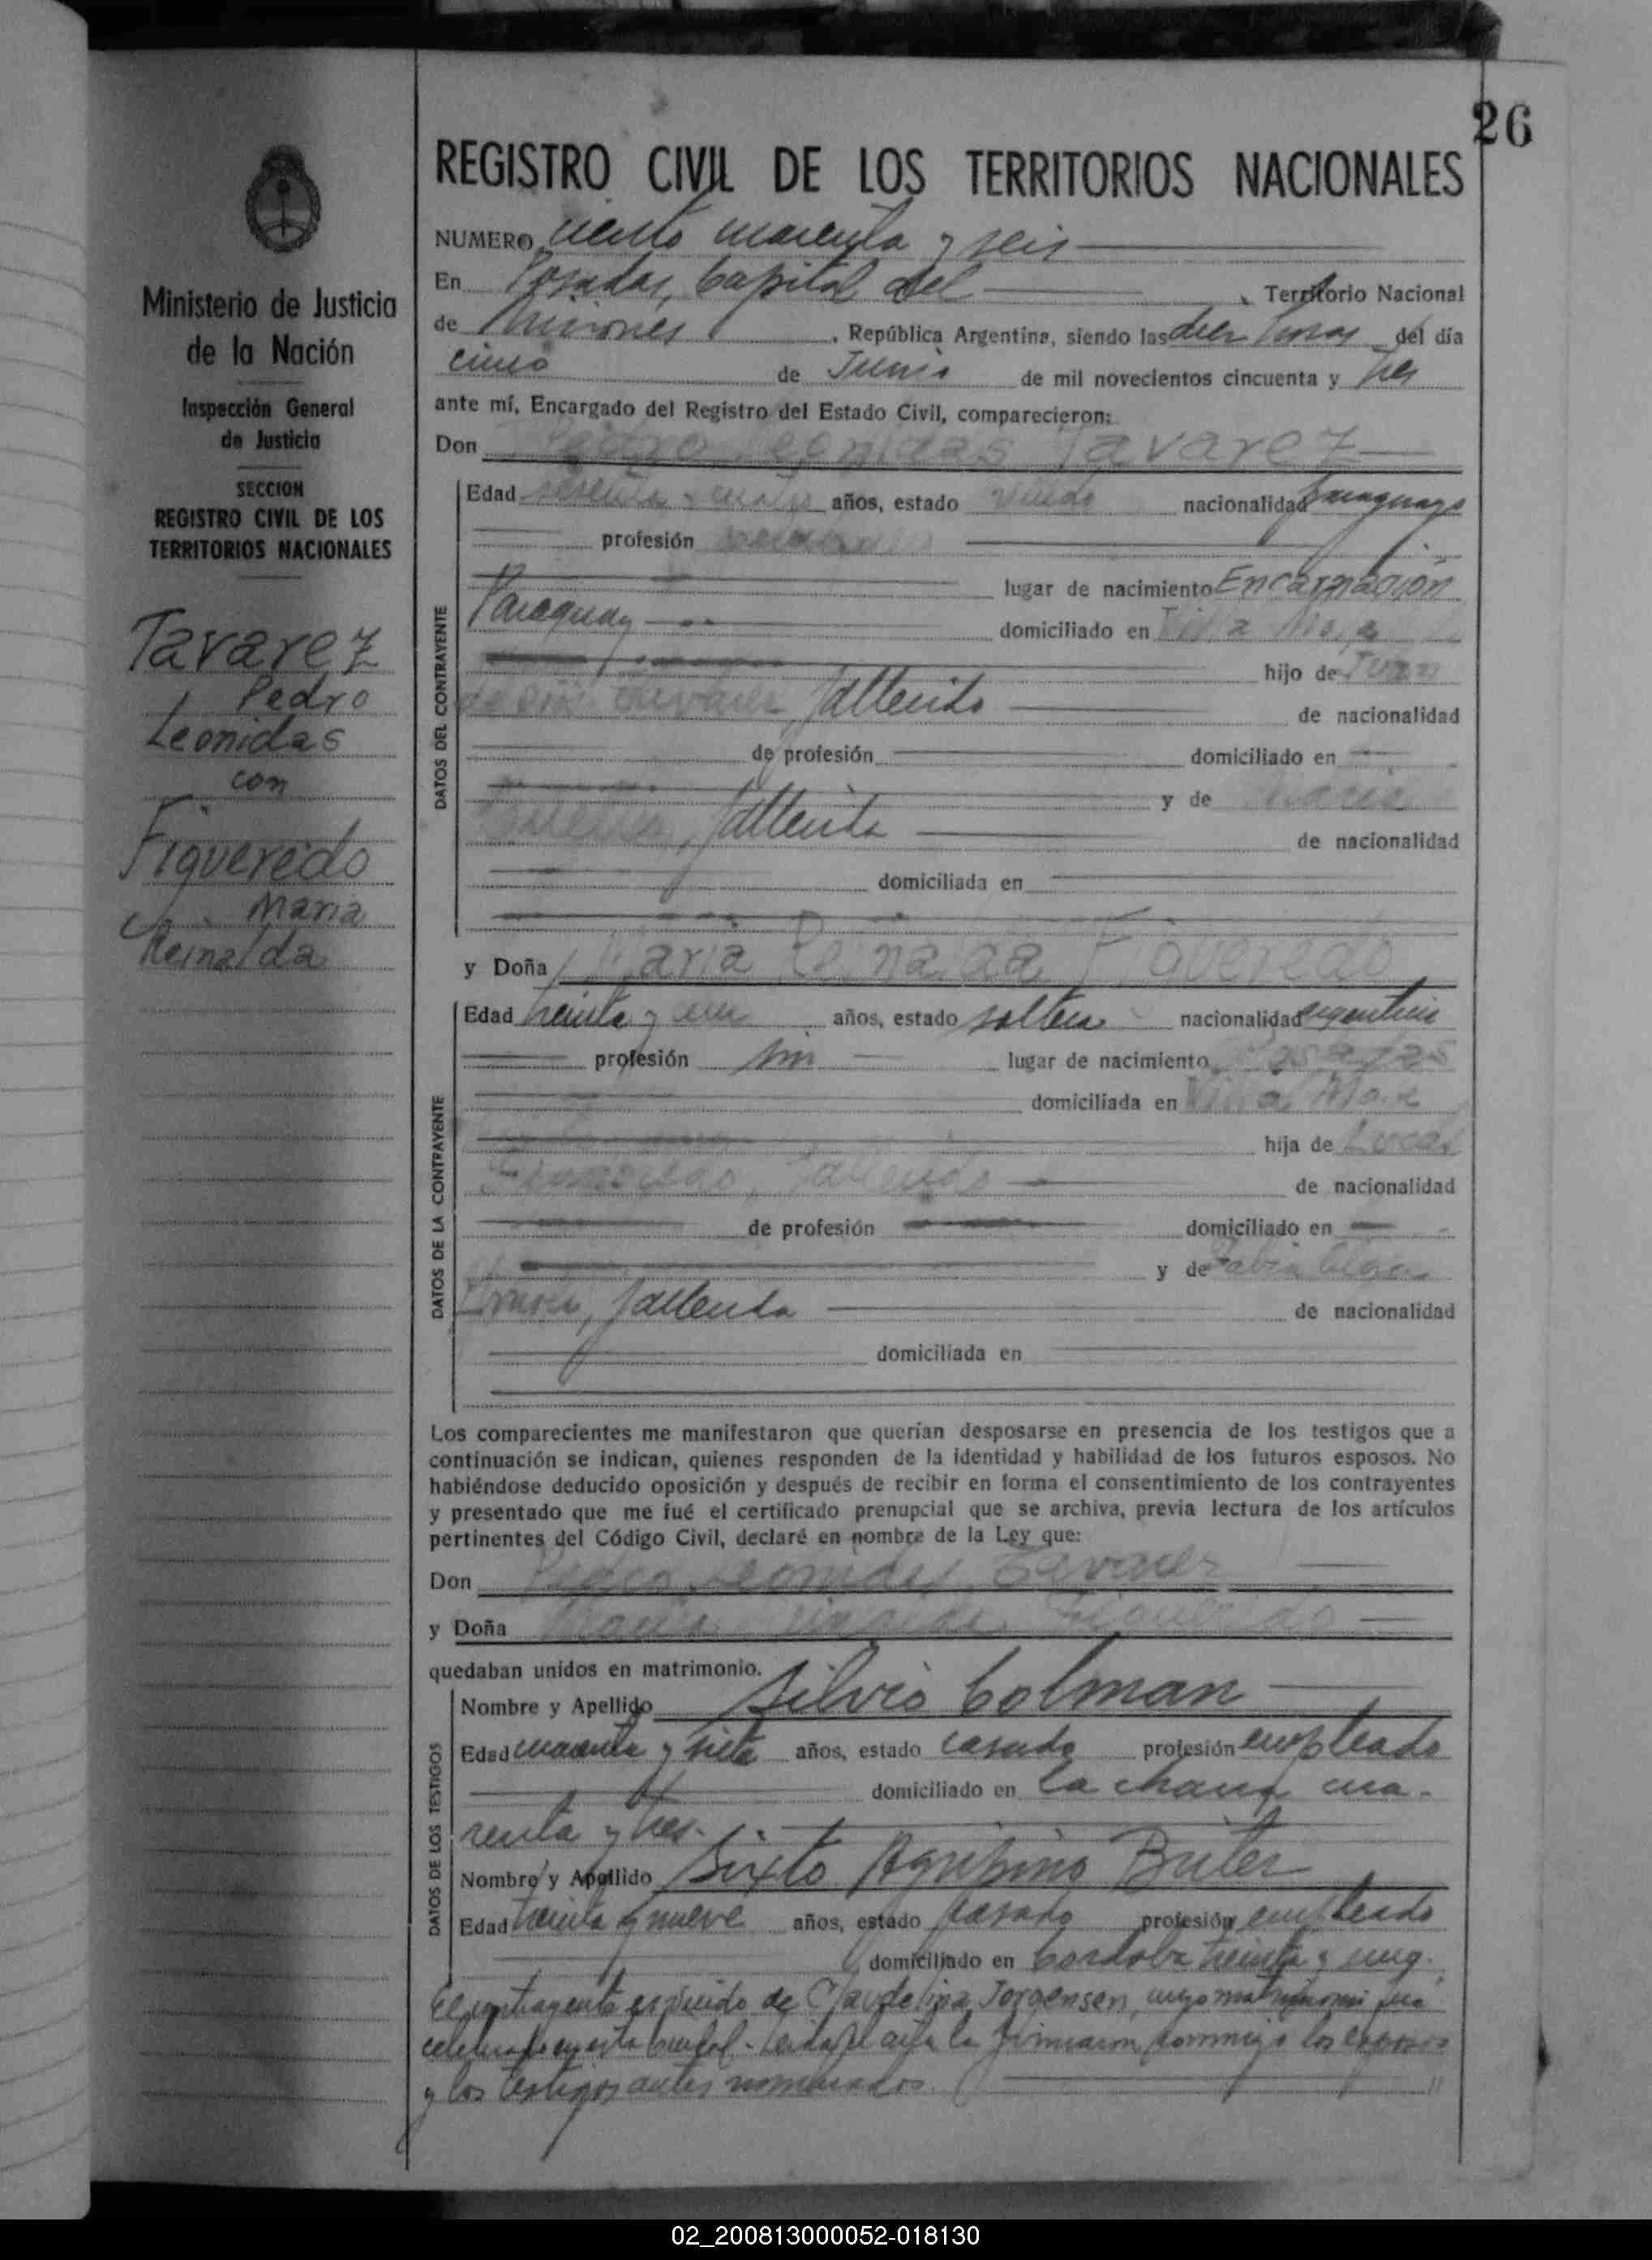 26
REGISTRO CIVIL DE LOS TERRITORIOS NACIONALES
NUMERO ciento cuarenta y seis
En Posadas, Capital del Territorio Nacional
de Misiones, República Argentina, siendo las diez horas del día
cinco de Junio de mil novecientos cincuenta y tres
ante mí, Encargado del Registro del Estado Civil, comparecieron:
Don Pedro Leonidas Tavarez
Edad sesenta y cuatro años, estado viudo nacionalidad paraguayo
profesión
lugar de nacimiento Encarnación
Paraguay domiciliado en Villa
hijo de Juan
Tavarez fallecido de nacionalidad
de profesión domiciliado en
y de María
fallecida de nacionalidad
domiciliada en
y Doña María Reinalda Figueredo
Edad treinta y un años, estado soltera nacionalidad argentina
profesión sin lugar de nacimiento Posadas
domiciliada en Villa
hija de Lucas
Figueredo, fallecido de nacionalidad
de profesión domiciliado en
y de
fallecida de nacionalidad
domiciliada en
Los comparecientes me manifestaron que querían desposarse en presencia de los testigos que a
continuación se indican, quienes responden de la identidad y habilidad de los futuros esposos. No
habiéndose deducido oposición y después de recibir en forma el consentimiento de los contrayentes
y presentado que me fué el certificado prenupcial que se archiva, previa lectura de los artículos
pertinentes del Código Civil, declaré en nombre de la Ley que:
Don Pedro Leonidas Tavarez
y Doña María Reinalda Figueredo
quedaban unidos en matrimonio.
Nombre y Apellido Silvio Colman
Edad cuarenta y siete años, estado casado profesión empleado
domiciliado en la chacra cua-
renta y tres.
Nombre y Apellido Sixto Agripino Britez
Edad treinta y nueve años, estado casado profesión empleado
domiciliado en Cordoba treinta y
El contrayente es viudo de Claudelina Jorgensen, cuyo matrimonio fue
celebrado en esta Capital. Leida el acta la firmaron conmigo los esposos
y los testigos antes nombrados.
DATOS DEL CONTRAYENTE
DATOS DE LA CONTRAYENTE
DATOS DE LOS TESTIGOS
Ministerio de Justicia
de la Nación
Inspección General
de Justicia
SECCION
REGISTRO CIVIL DE LOS
TERRITORIOS NACIONALES
Tavarez
Pedro
Leonidas
con
Figueredo
Maria
Reinalda
02_200813000052-018130